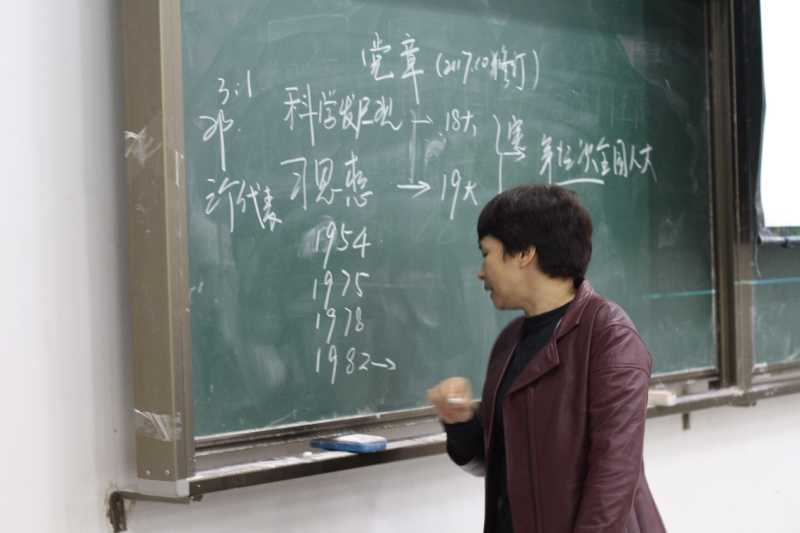 党章(2017.10修订)
3:1
邓 科学发展观→18大
宪→第十三次全国人大
三个代表 习思想→19大
1954
1975
1978
1982→